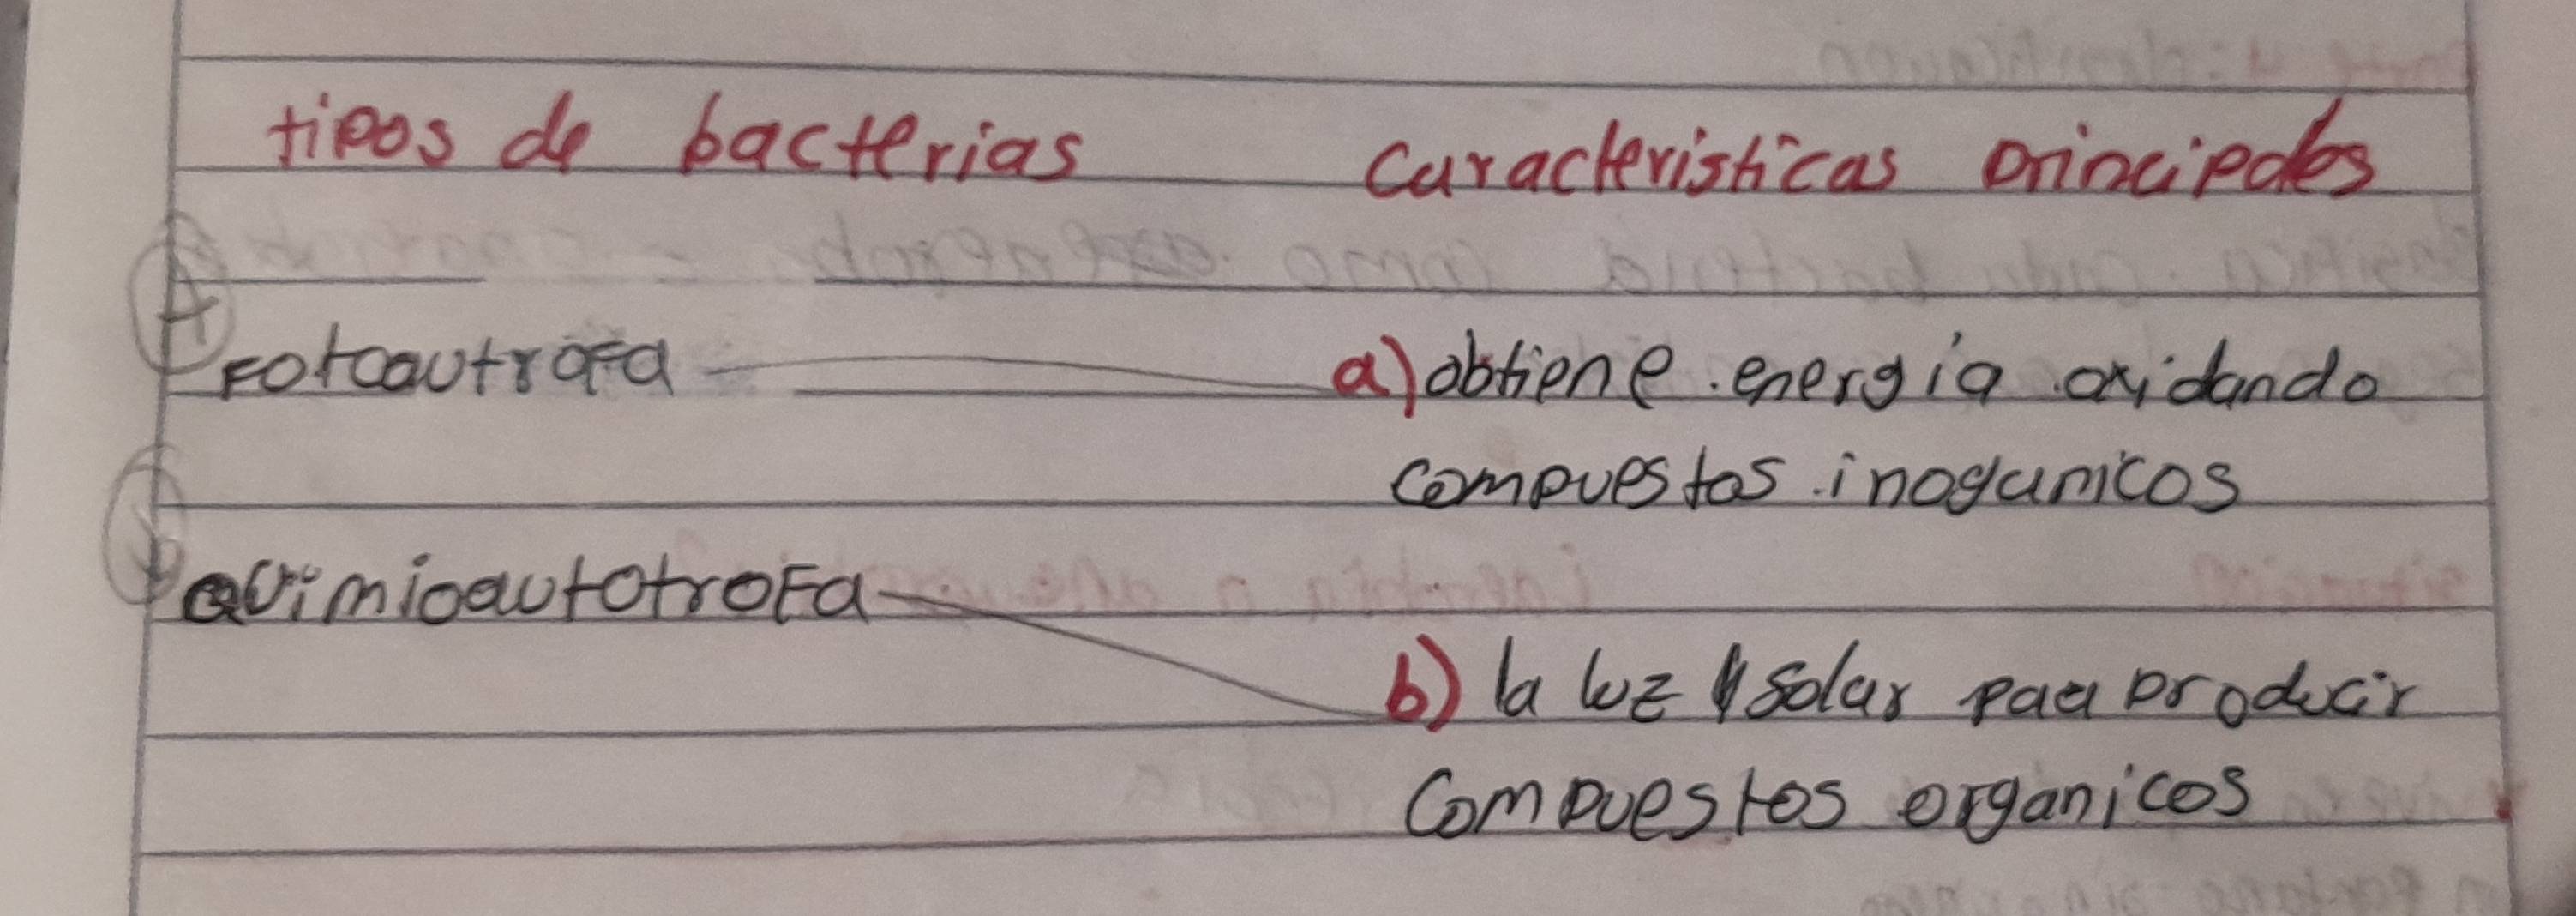 tipos de bacterias caracteristicas principales
Fotoautrofa a) obtiene energia oxidando
compuestos inoganicos
Quimioautotrofa
b) la luz solar paa producir
compuestos organicos